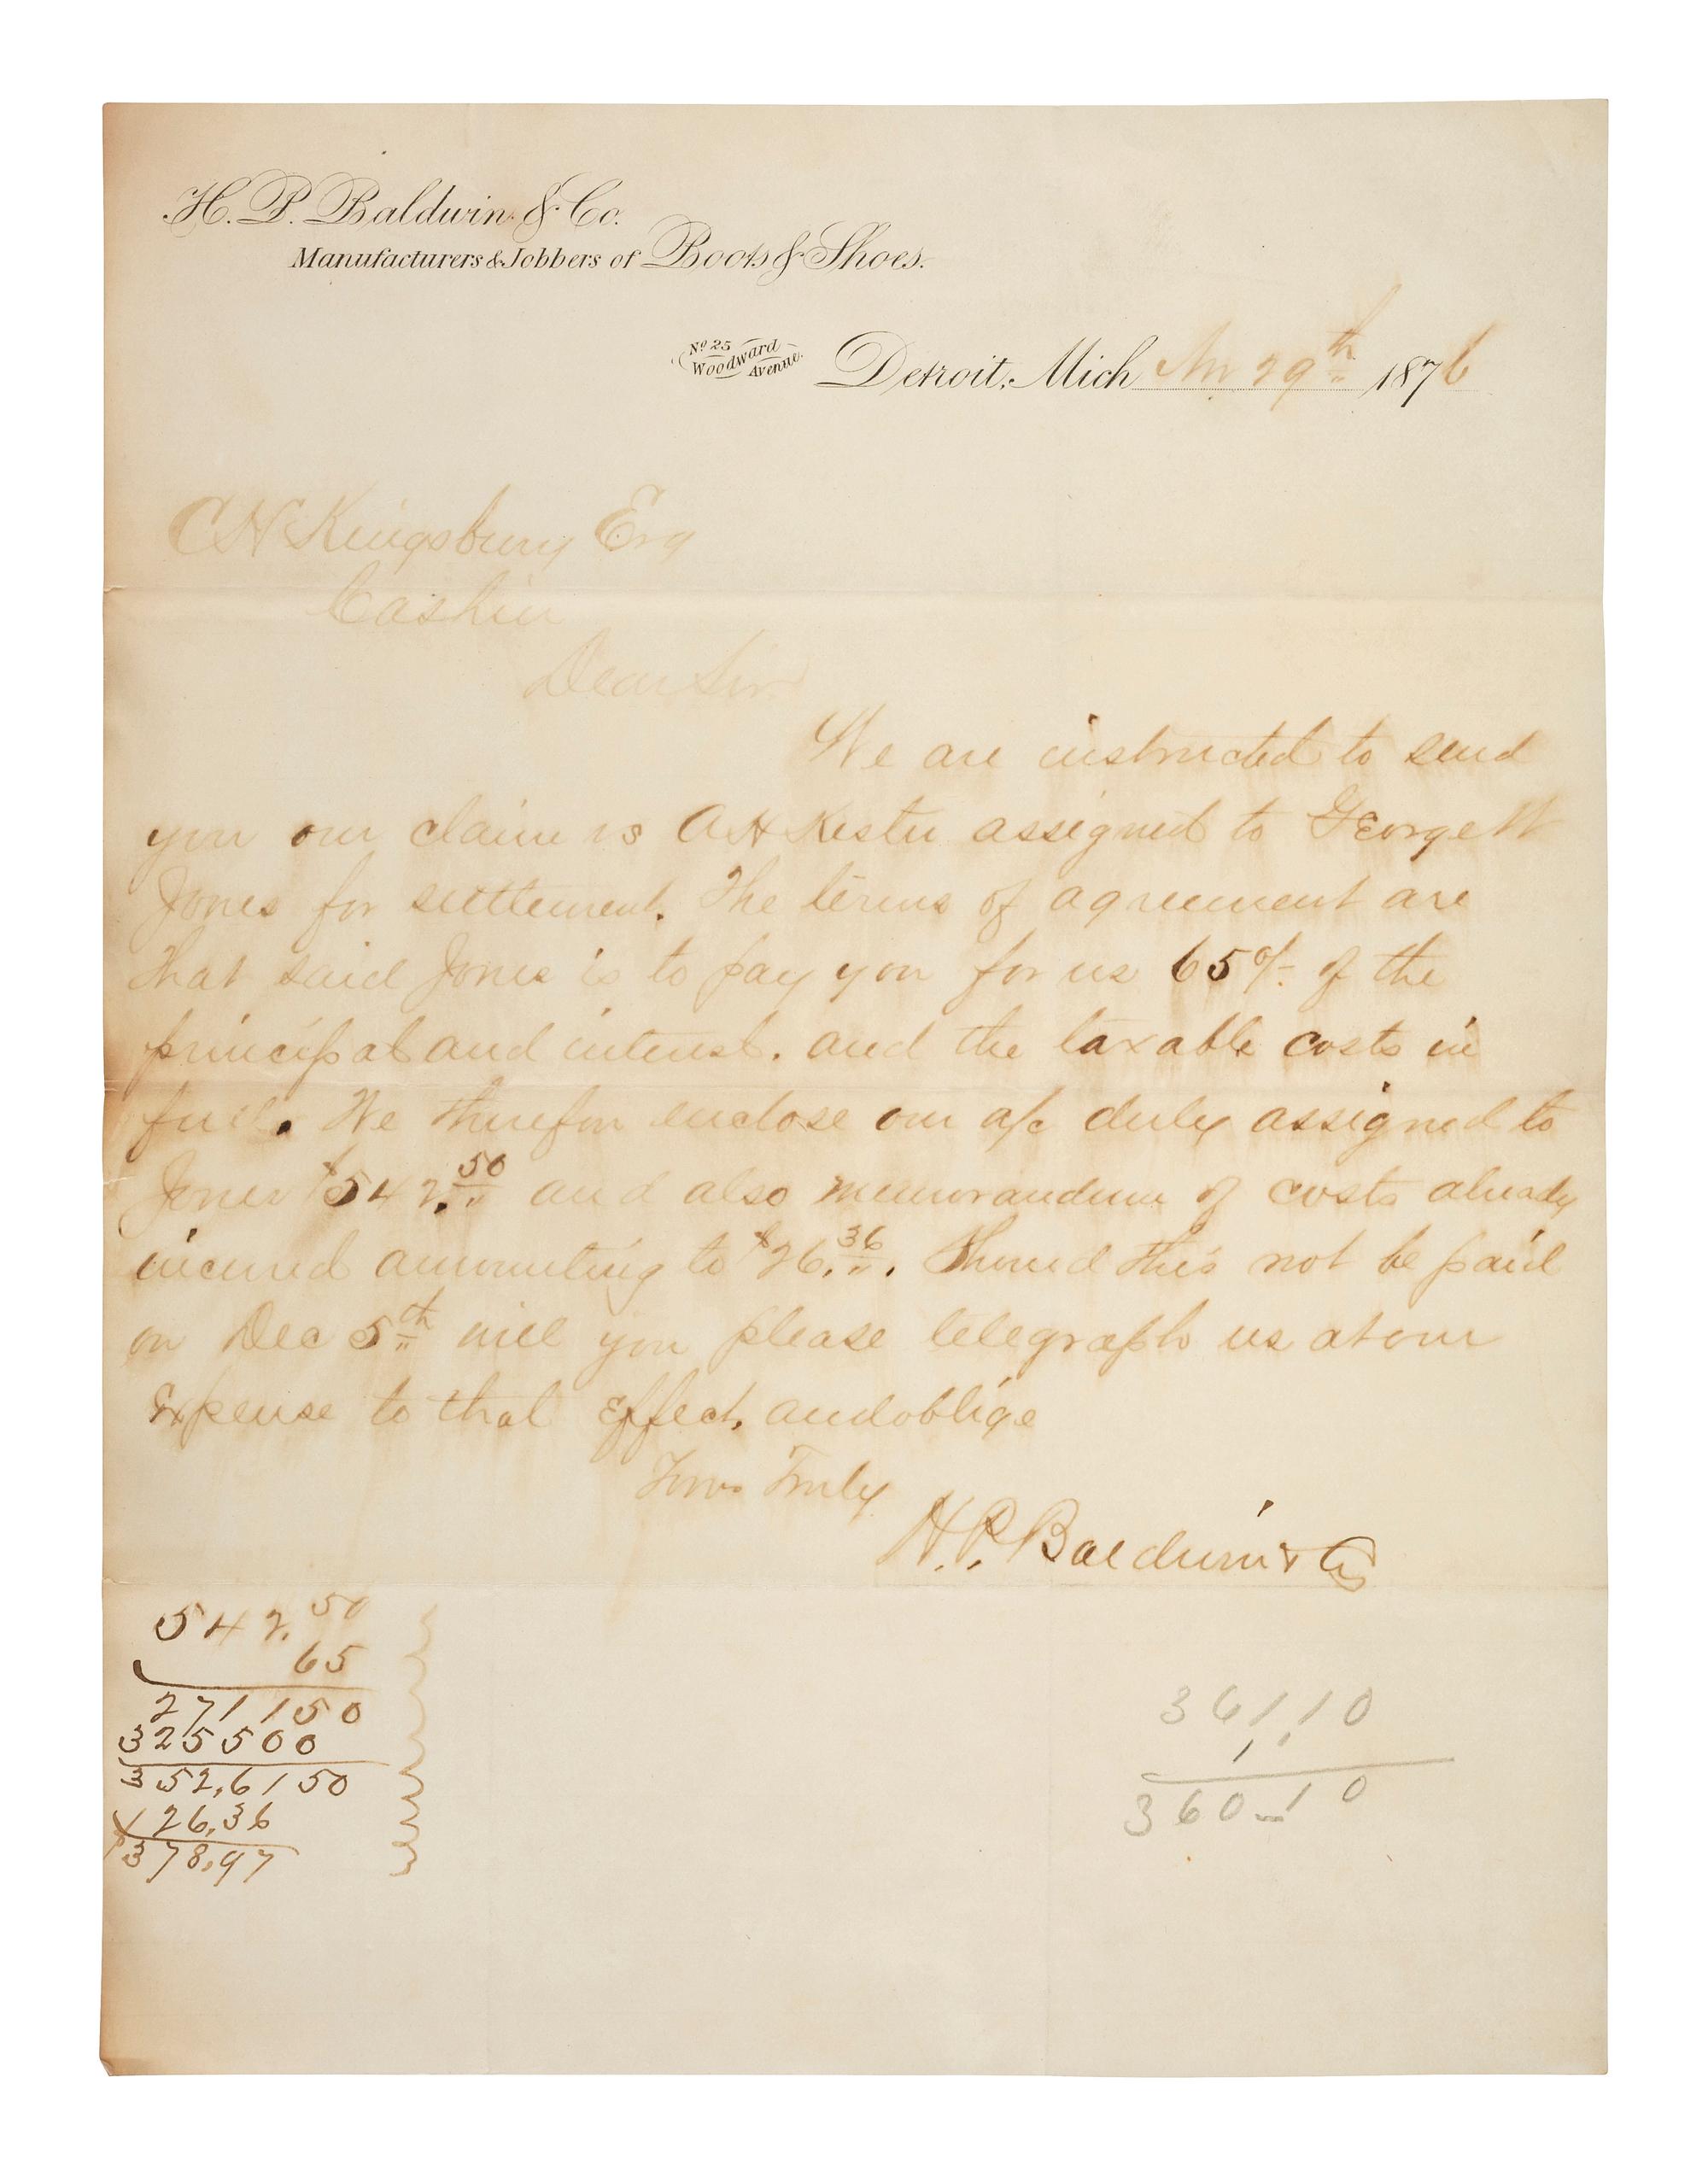 H. P. Baldwin & Co.
Manufacturers & Jobbers of Boots & Shoes.
No 25 Woodward Avenue.
Detroit, Mich Nov 29th 1876
C H Kingsbury Esq
Cashier
Dear Sir
We are instructed to send
you our claim vs A H Kester assigned to George W
Jones for settlement. The terms of agreement are
that said Jones is to pay you for us 65% of the
principal and interest. and the taxable costs in
full. We therefore enclose our a/c duly assigned to
Jones $542.50 and also memorandum of costs already
incurred amounting to $26.36. Should this not be paid
on Dec 5th will you please telegraph us at our
Expense to that Effect, and oblige
Yours Truly
H. P. Baldwin & Co
542.50
65
271150
325500
352,6150
26,36
378,97
361,10
1.
360-10